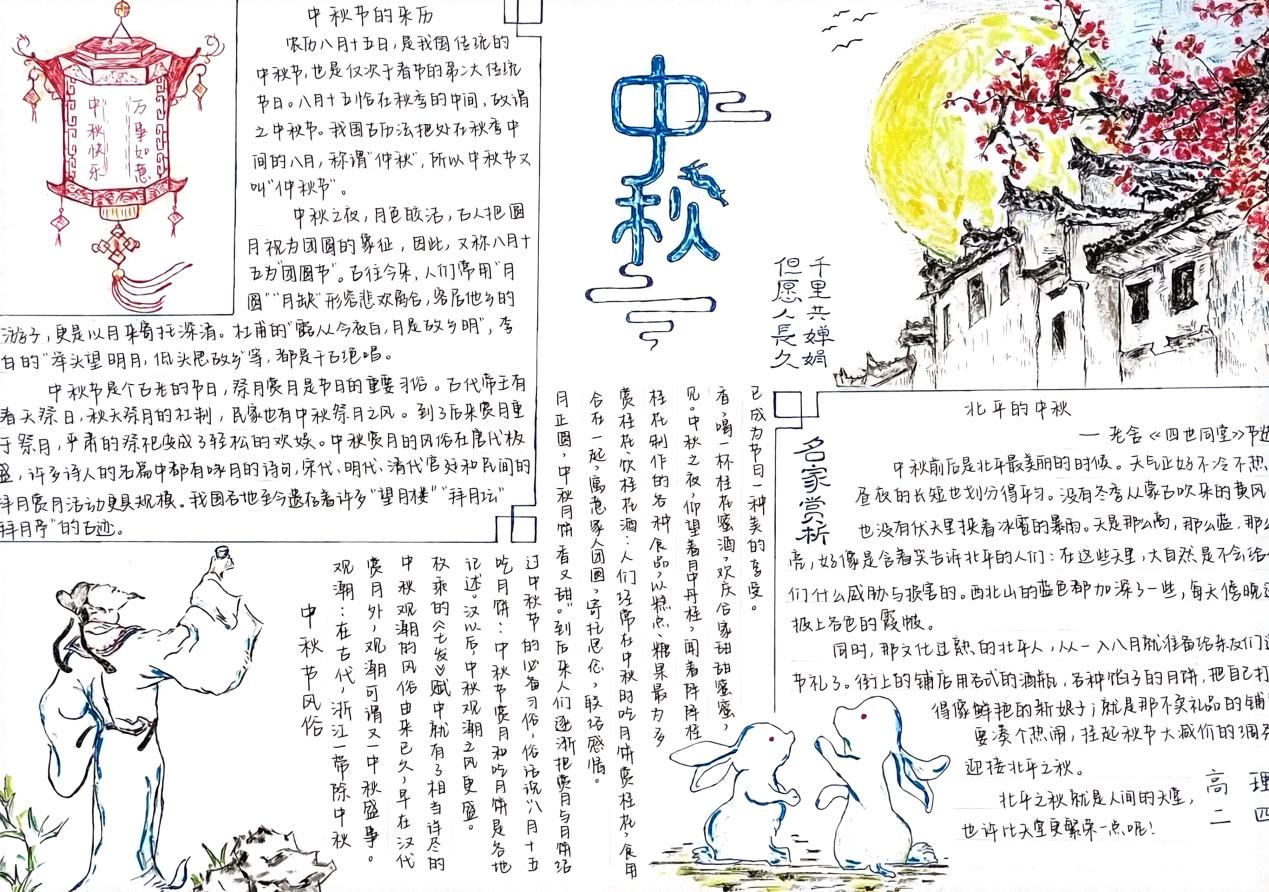 中秋快乐
万事如意
中秋节的来历
农历八月十五日，是我国传统的
中秋节，也是仅次于春节的第二大传统
节日。八月十五恰在秋季的中间，故谓
之中秋节。我国古历法把处在秋季中
间的八月，称谓"仲秋"，所以中秋节又
叫"仲秋节"。
中秋之夜，月色皎洁，古人把圆
月视为团圆的象征，因此，又称八月十
五为"团圆节"。古往今来，人们常用"月
圆""月缺"形容悲欢离合，客居他乡的
游子，更是以月来寄托深情。杜甫的"露从今夜白，月是故乡明"，李
白的"举头望明月，低头思故乡"等，都是千古绝唱。
中秋节是个古老的节日，祭月赏月是节日的重要习俗。古代帝王有
春天祭日，秋天祭月的社制，民家也有中秋祭月之风。到了后来赏月重
于祭月，严肃的祭祀变成了轻松的欢娱。中秋赏月的风俗在唐代极
盛，许多诗人的名篇中都有咏月的诗句，宋代、明代、清代宫廷和民间的
拜月赏月活动更具规模。我国各地至今遗存着许多"望月楼""拜月坛"
"拜月亭"的古迹。
中秋
但愿人長久
千里共婵娟
中秋节风俗
观潮：在古代，浙江一带除中秋
赏月外，观潮可谓又一中秋盛事。
中秋观潮的风俗由来已久，早在汉代
枚乘的《七发》赋中就有了相当详尽的
记述。汉以后，中秋观潮之风更盛。
吃月饼：中秋节赏月和吃月饼是各地
过中秋节的必备习俗，俗话说八月十五
月正圆，中秋月饼香又甜。到后来人们逐渐把赏月与月饼结
合在一起，寓意家人团圆，寄托思念，联络感情。
赏桂花、饮桂花酒：人们经常在中秋时吃月饼赏桂花，食用
桂花制作的各种食品，以糕点、糖果最为多
见。中秋之夜，仰望着月中丹桂，闻着阵阵桂
香，喝一杯桂花蜜酒，欢庆合家甜甜蜜蜜，
已成为节日一种美的享受。
名家赏析
北平的中秋
——老舍《四世同堂》节选
中秋前后是北平最美丽的时候。天气正好不冷不热，
昼夜的长短也划分得平匀。没有冬季从蒙古吹来的黄风，
也没有伏天里挟着冰雹的暴雨。天是那么高，那么蓝，那么
亮，好像是含着笑告诉北平的人们：在这些天里，大自然是不会给你
们什么威胁与损害的。西北山的蓝色都加深了一些，每天傍晚还
披上各色的霞帔。
同时，那文化过熟的北平人，从一入八月就准备给亲友们送
节礼了。街上的铺店用各式的酒瓶，各种馅子的月饼，把自己打扮
得像鲜艳的新娘子；就是那不卖礼品的铺
要凑个热闹，挂起秋节大减价的
迎接北平之秋。
北平之秋就是人间的天堂，
也许比天堂更繁荣一点呢！
高二
理四